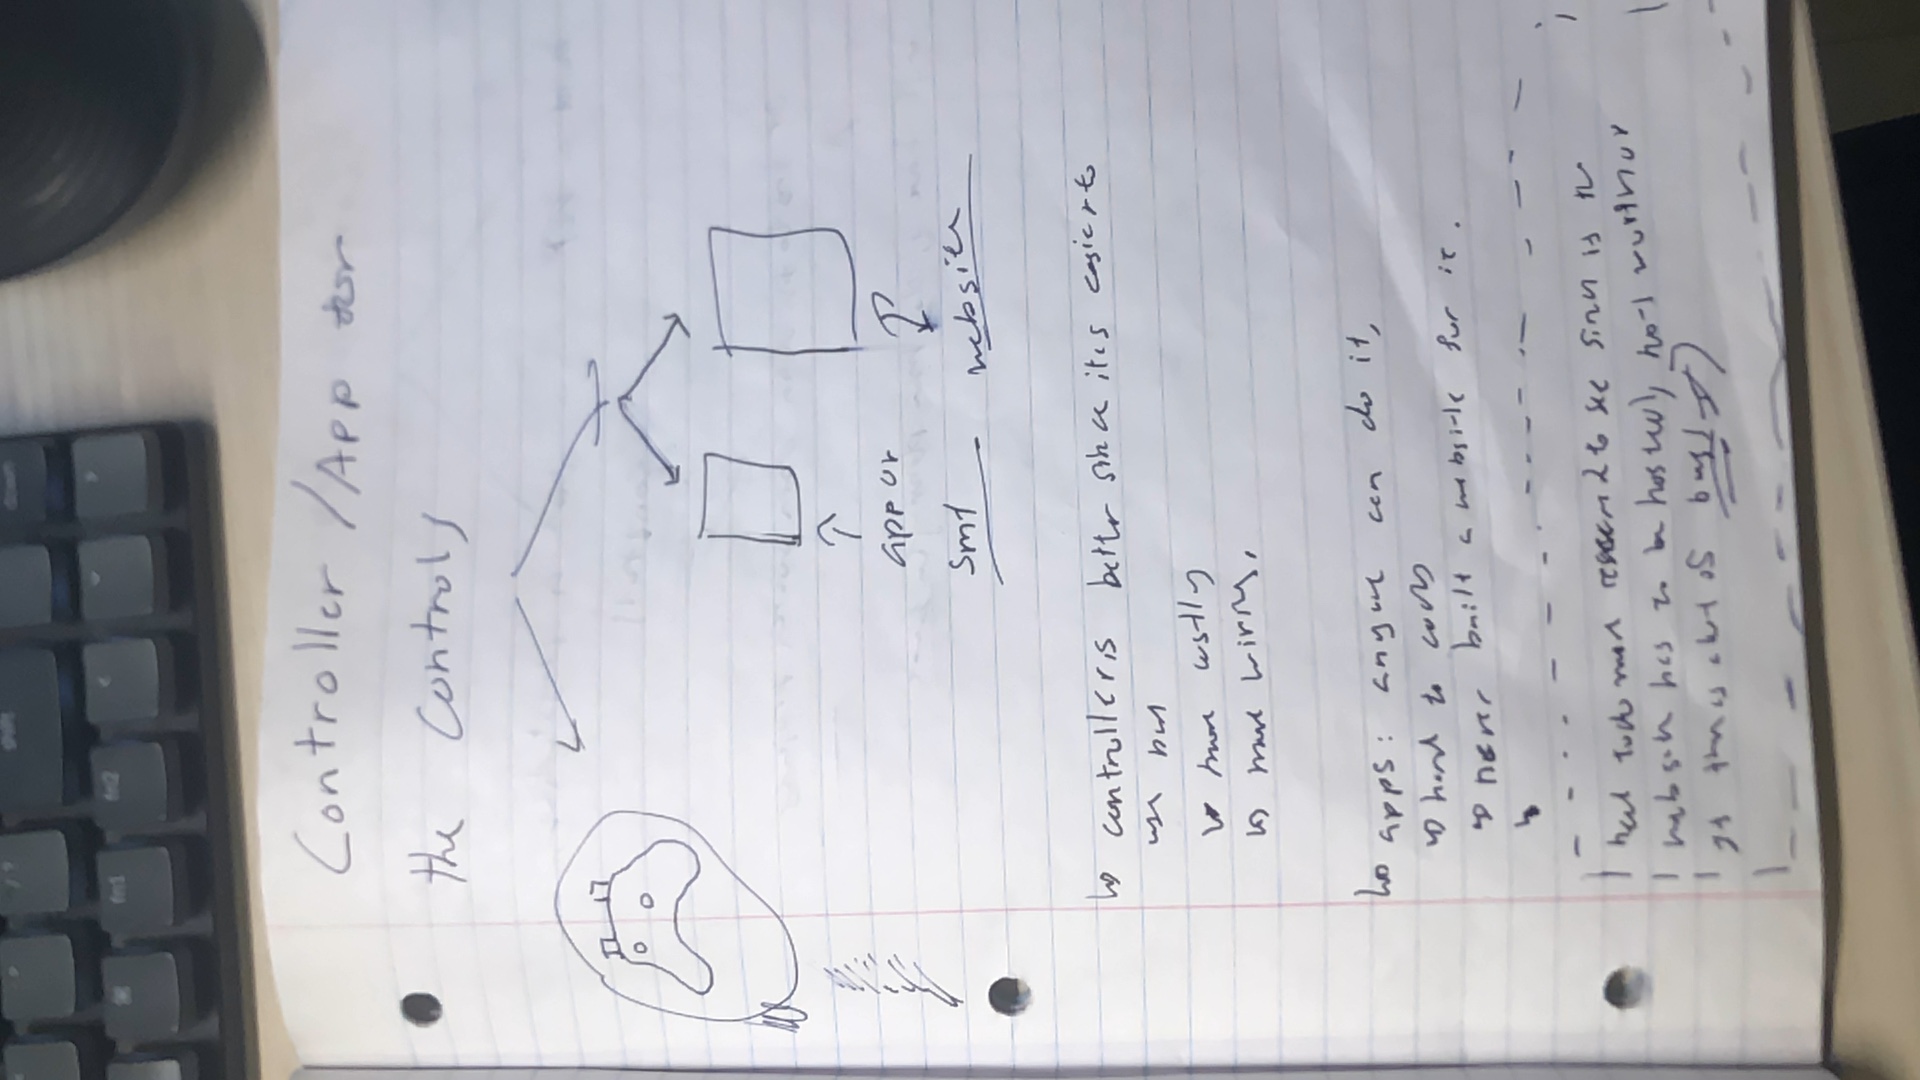 shift
fn1 fn2
Controller / App for
the Controls
app or
smt
website
controller is better since it is easier to
use but
more costly
more wiring.
apps: anyone can do it,
hard to code
never built a website for it.
need to do more research to see since is the
website has to be hosted, not worth or
of there is a lot of bugs